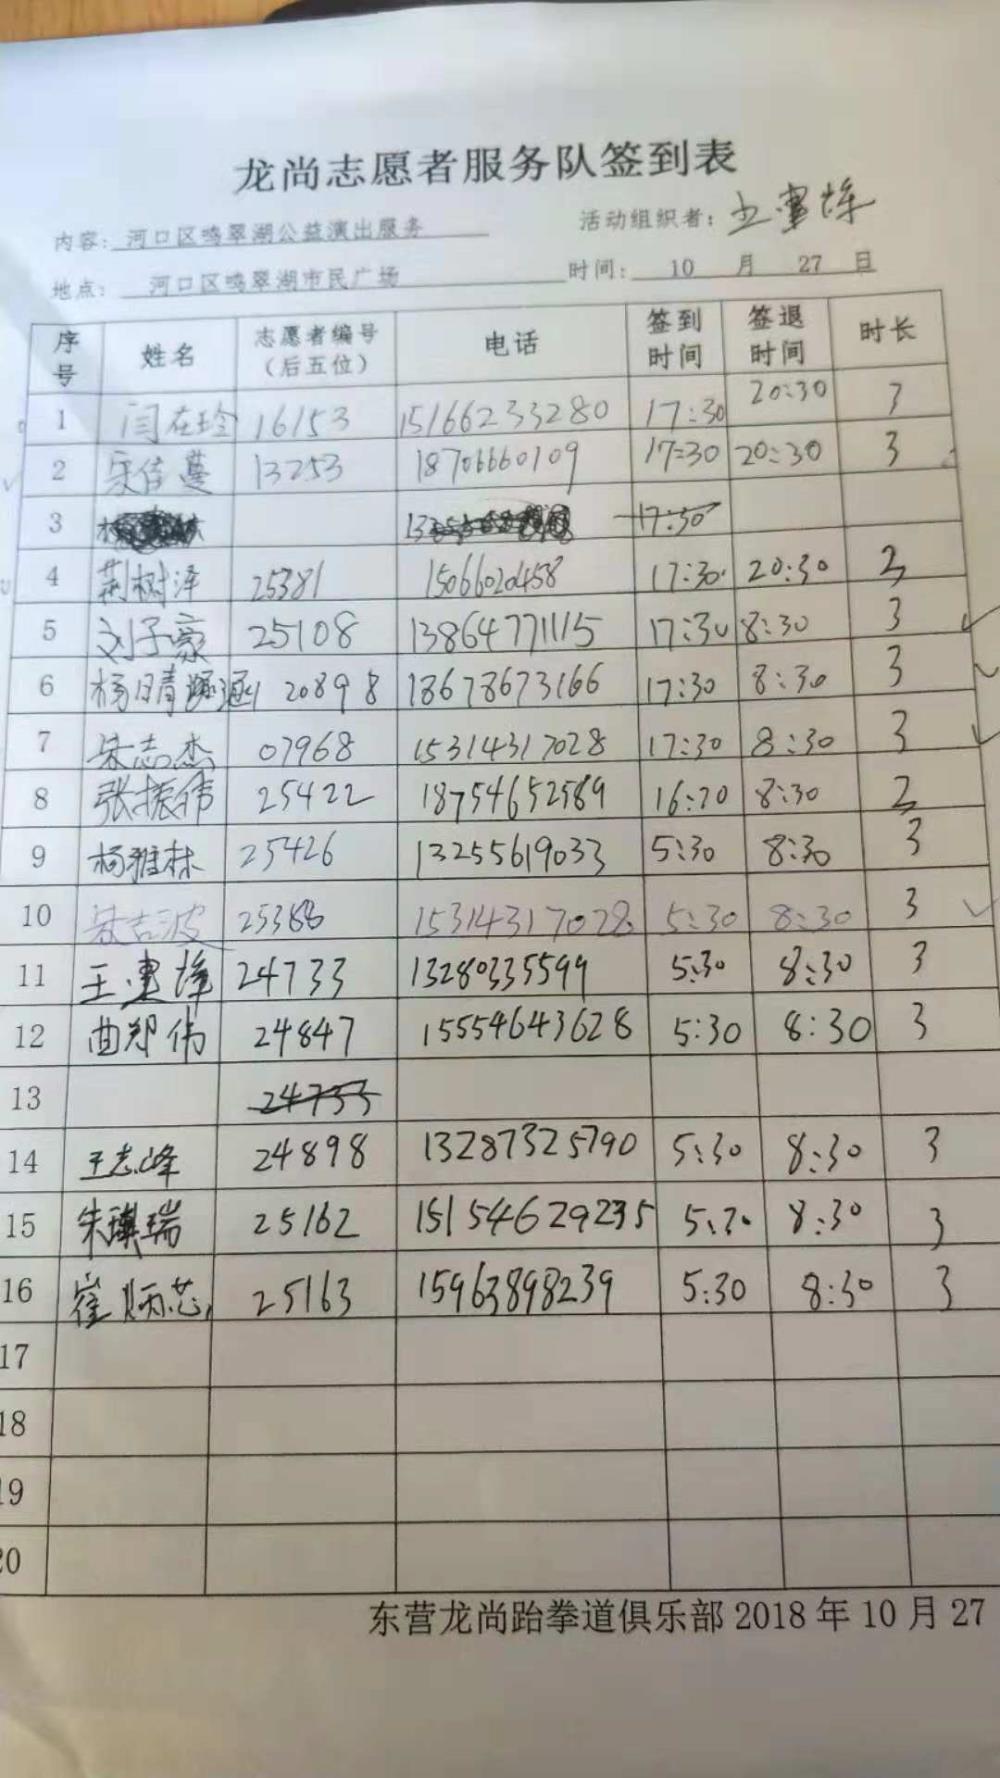 龙尚志愿者服务队签到表
内容：河口区鸣翠湖公益演出服务 活动组织者：
地点：河口区鸣翠湖市民广场 时间：10 月 27 日
序号 姓名 志愿者编号（后五位） 电话 签到时间 签退时间 时长
1 闫在玲 16153 15166233280 17:30 20:30 3
2 宋佳蔓 13253 18706660109 17:30 20:30 3
3 17:30
4 荆树泽 25381 15066020458 17:30 20:30 3
5 刘子豪 25108 13864771115 17:30 8:30 3
6 杨晴涵 20898 18678673166 17:30 8:30 3
7 宋志杰 07968 15314317028 17:30 8:30 3
8 张振伟 25422 18754652589 8:30
9 杨雅林 25426 13255619033 5:30 8:30 3
10 25388 15314317028 5:30 8:30 3
11 24733 13280335599 5:30 8:30 3
12 曲郑伟 24847 15554643628 5:30 8:30 3
13 24733
14 王志峰 24898 13287325790 5:30 8:30 3
15 朱琪瑞 25162 15154629235 5:30 8:30 3
16 崔炳芯 25163 15963898239 5:30 8:30 3
17
18
19
20
东营龙尚跆拳道俱乐部 2018 年 10 月 27